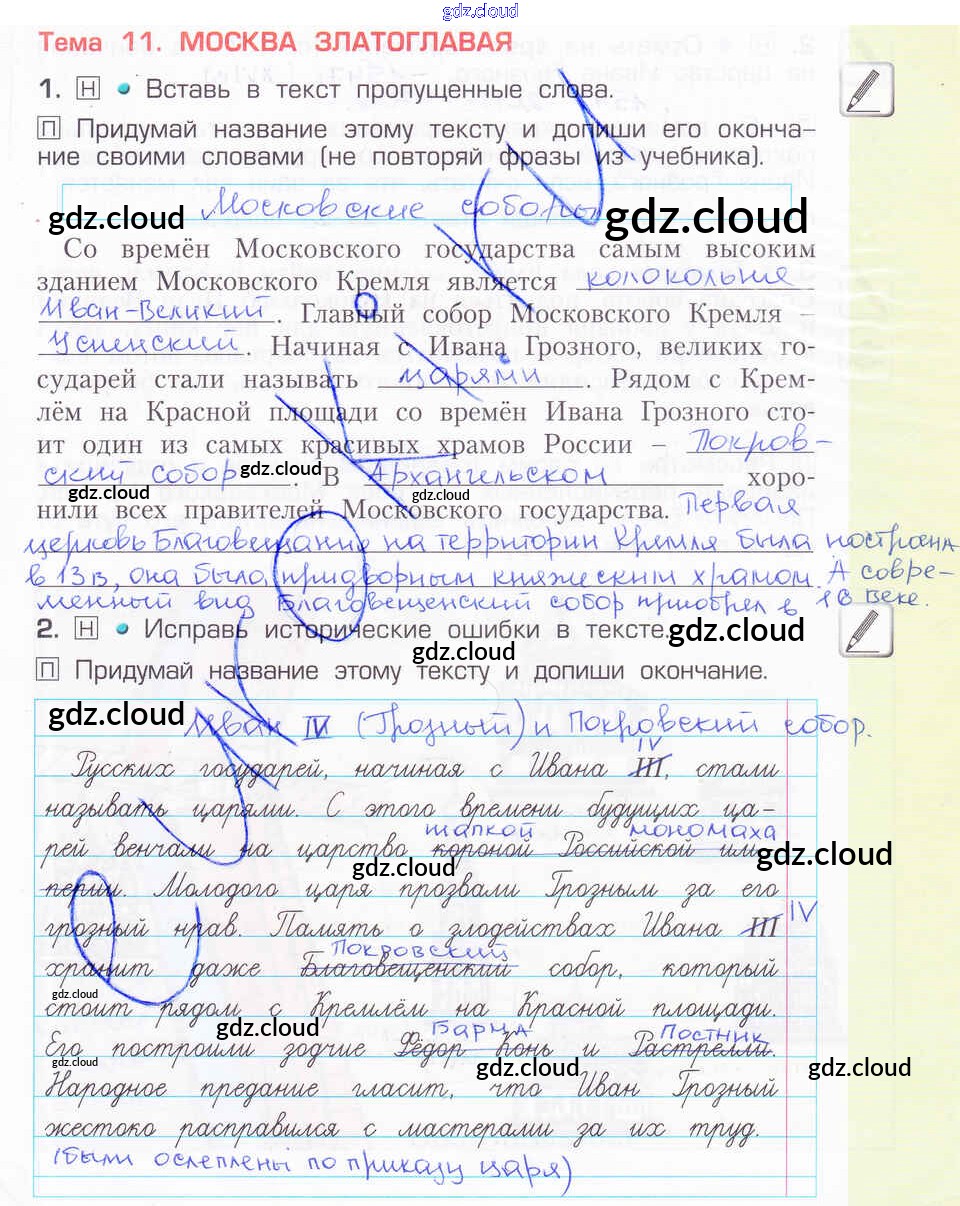 gdz.cloud
Тема 11. МОСКВА ЗЛАТОГЛАВАЯ
1. Н • Вставь в текст пропущенные слова.
П Придумай название этому тексту и допиши его оконча-
ние своими словами (не повторяй фразы из учебника).
gdz.cloud Московские соборы gdz.cloud
Со времён Московского государства самым высоким
зданием Московского Кремля является колокольня
Иван-Великий. Главный собор Московского Кремля –
Успенский. Начиная с Ивана Грозного, великих го-
сударей стали называть царями. Рядом с Крем-
лём на Красной площади со времён Ивана Грозного сто-
ит один из самых красивых храмов России – Покров-
ский собор gdz.cloud. В Архангельском хоро-
gdz.cloud
нили всех правителей Московского государства. Первая
церковь Благовещания на территории Кремля была построена
в 13 в, она была придворным княжеским храмом. А совре-
менный вид Благовещенский собор приобрел в 16 веке.
2. Н • Исправь исторические ошибки в тексте. gdz.cloud
gdz.cloud
П Придумай название этому тексту и допиши окончание.
gdz.cloud Иван IV (Грозный) и Покровский собор.
IV
Русских государей, начиная с Ивана III, стали
называть царями. С этого времени будущих ца-
шапкой мономаха
рей венчали на царство короной Российской им-
gdz.cloud gdz.cloud
перии. Молодого царя прозвали Грозным за его
IV
грозный нрав. Память о злодействах Ивана III
Покровский
хранит даже Благовещенский собор, который
gdz.cloud
стоит рядом с Кремлём на Красной площади.
gdz.cloud Барма Постник
Его построили зодчие Фёдор Конь и Растрелли.
gdz.cloud gdz.cloud gdz.cloud
Народное предание гласит, что Иван Грозный
жестоко расправился с мастерами за их труд.
(были ослеплены по приказу царя)